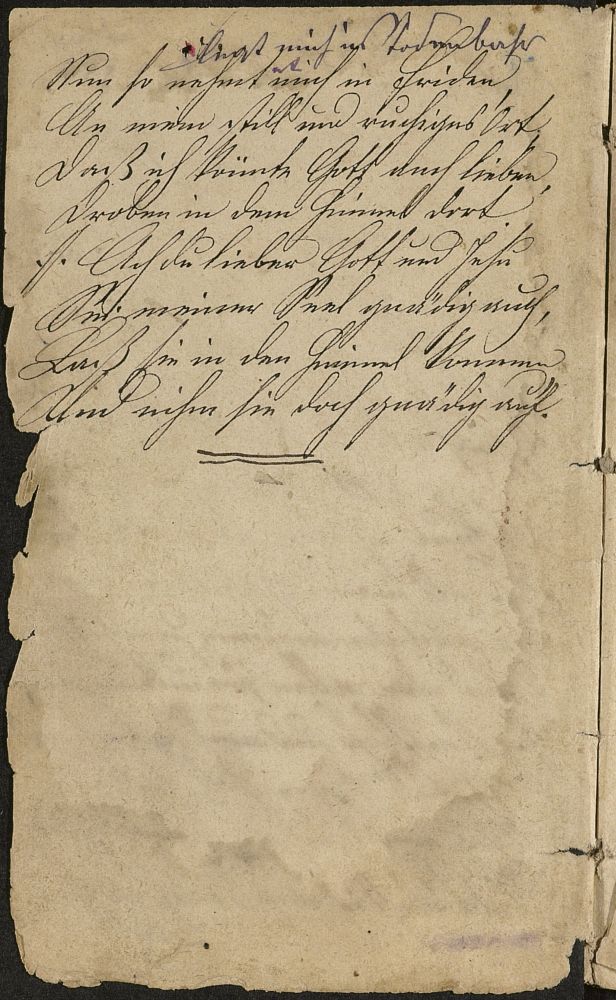 Liegt mich in Todenbahr
Nun so nehmt mich in Friden,
An mein still und ruhiges Ort,
Daß ich könnte Gott auch lieben,
Droben in dem Himmel dort
Ach du lieber Gott und Jesu
Sei meiner Seel gnädig auch,
Laß sie in den Himmel kommen
Und nihm sie doch gnädig auf.